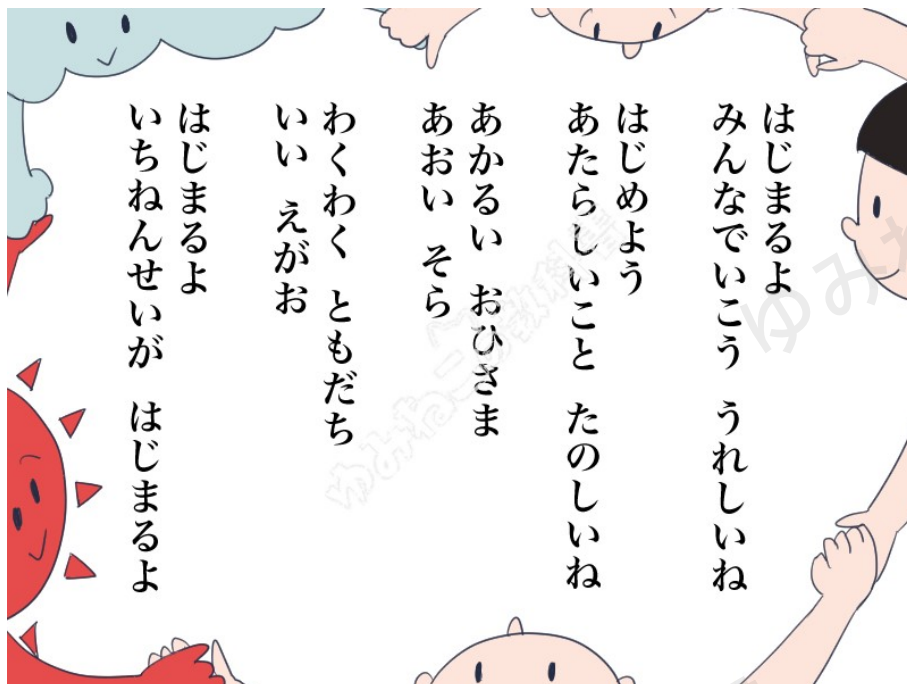 はじまるよ
みんなでいこう　うれしいね
はじめよう
あたらしいこと　たのしいね
あかるい　おひさま
あおい　そら
わくわく　ともだち
いい　えがお
はじまるよ
いちねんせいが　はじまるよ
ゆみねこの教科書
ゆみね